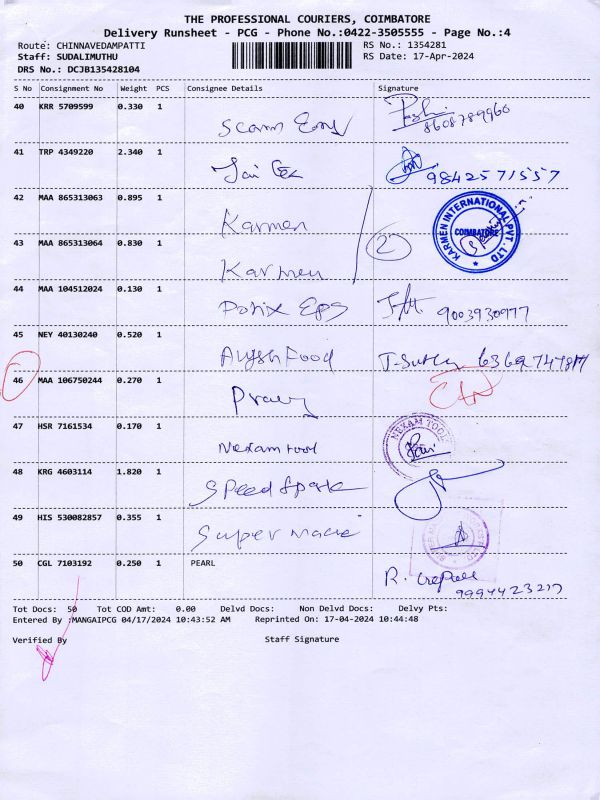 THE PROFESSIONAL COURIERS, COIMBATORE
Delivery Runsheet - PCG - Phone No.:0422-3505555 - Page No.:4
Route: CHINNAVEDAMPATTI RS No.: 1354281
Staff: SUDALIMUTHU RS Date: 17-Apr-2024
DRS No.: DCJB135428104
S No Consignment No Weight PCS Consignee Details Signature
40 KRR 5709599 0.330 1
8608789960
41 TRP 4349220 2.340 1
9842571557
42 MAA 865313063 0.895 1
Karmen
KARMEN INTERNATIONAL PVT. LTD
COIMBATORE
2
43 MAA 865313064 0.830 1
Karmen
44 MAA 104512024 0.130 1
9003930977
45 NEY 40130240 0.520 1
Food
46 MAA 106750244 0.270 1
47 HSR 7161534 0.170 1
Nexam tool
NEXAM TOOL
48 KRG 4603114 1.820 1
Speed Spark
49 HIS 530082857 0.355 1
Super
50 CGL 7103192 0.250 1 PEARL
R.
Tot Docs: 50 Tot COD Amt: 0.00 Delvd Docs: Non Delvd Docs: Delvy Pts:
Entered By :MANGAIPCG 04/17/2024 10:43:52 AM Reprinted On: 17-04-2024 10:44:48
Verified By Staff Signature